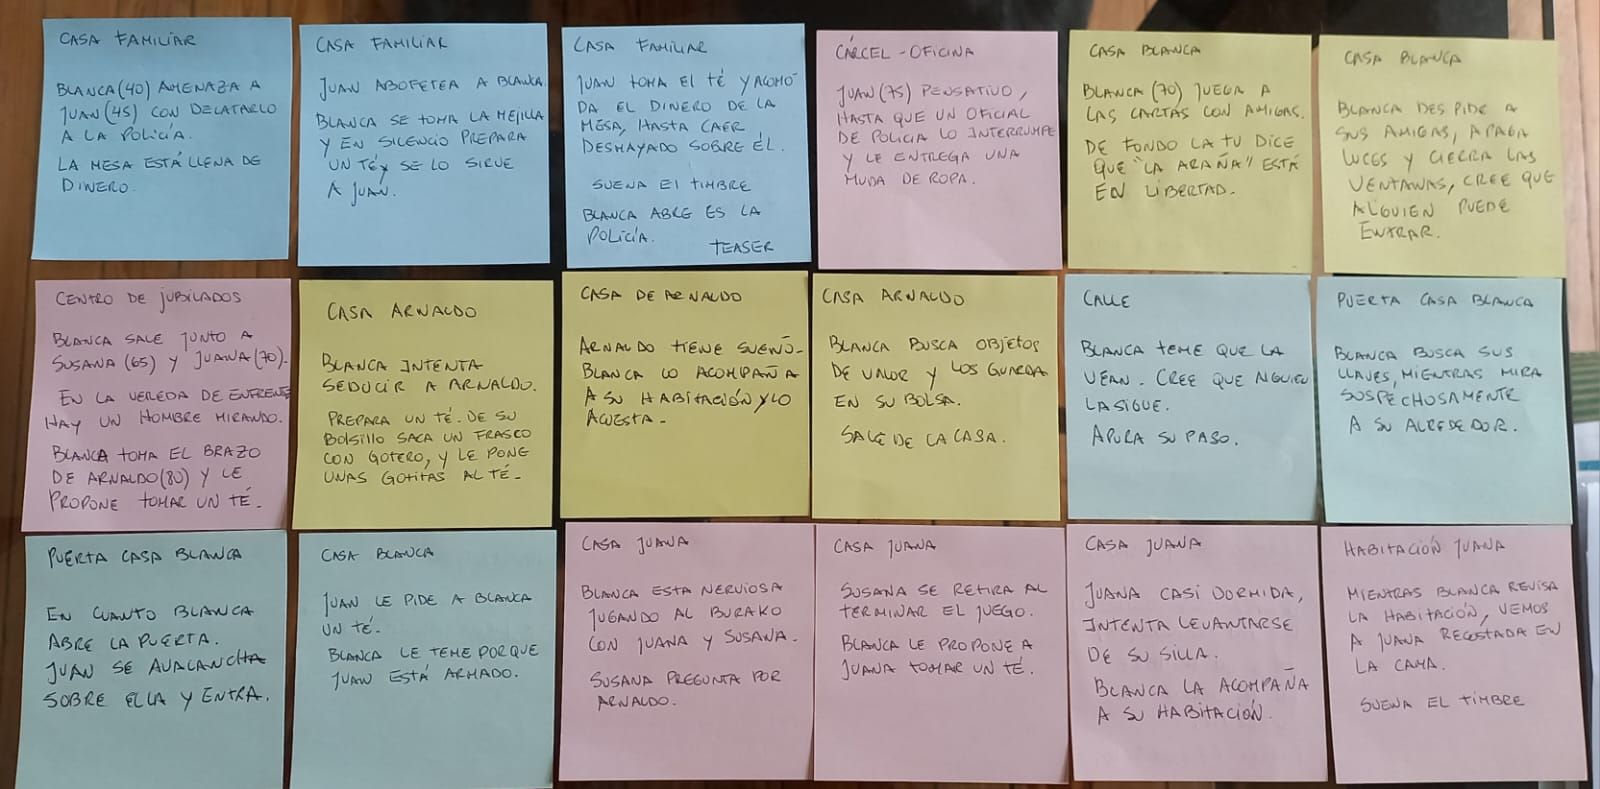 CASA FAMILIAR
BLANCA (40) AMENAZA A
JUAN (45) CON DELATARLO
A LA POLICÍA.
LA MESA ESTÁ LLENA DE
DINERO.
CASA FAMILIAR
JUAN ABOFETEA A BLANCA.
BLANCA SE TOMA LA MEJILLA
Y EN SILENCIO PREPARA
UN TÉ Y SE LO SIRVE
A JUAN.
CASA FAMILIAR
JUAN TOMA El TÉ Y ACOMO-
DA EL DINERO DE LA
MESA, HASTA CAER
DESMAYADO SOBRE ÉL.
SUENA El TIMBRE
BLANCA ABRE ES LA
POLICÍA.
TEASER
CÁRCEL - OFICINA
JUAN (75) PENSATIVO,
HASTA QUE UN OFICIAL
DE POLICIA LO INTERRUMPE
Y LE ENTREGA UNA
MUDA DE ROPA.
CASA BLANCA
BLANCA (70) JUEGA A
LAS CARTAS CON AMIGAS.
DE FONDO LA TV DICE
QUE "LA ARAÑA" ESTÁ
EN LIBERTAD.
CASA BLANCA
BLANCA DESPIDE A
SUS AMIGAS, APAGA
LUCES Y CIERRA LAS
VENTANAS, CREE QUE
ALGUIEN PUEDE
ENTRAR.
CENTRO DE JUBILADOS
BLANCA SALE JUNTO A
SUSANA (65) Y JUANA (70).
EN LA VEREDA DE ENFRENTE
HAY UN HOMBRE MIRANDO.
BLANCA TOMA EL BRAZO
DE ARNALDO (80) Y LE
PROPONE TOMAR UN TÉ.
CASA ARNALDO
BLANCA INTENTA
SEDUCIR A ARNALDO.
PREPARA UN TÉ. DE SU
BOLSILLO SACA UN FRASCO
CON GOTERO, Y LE PONE
UNAS GOTITAS AL TÉ.
CASA DE ARNALDO
ARNALDO TIENE SUEÑO.
BLANCA LO ACOMPAÑA
A SU HABITACIÓN Y LO
ACUESTA.
CASA ARNALDO
BLANCA BUSCA OBJETOS
DE VALOR Y LOS GUARDA
EN SU BOLSA.
SALE DE LA CASA.
CALLE
BLANCA TEME QUE LA
VEAN. CREE QUE
LA SIGUE.
APURA SU PASO.
PUERTA CASA BLANCA
BLANCA BUSCA SUS
LLAVES, MIENTRAS MIRA
SOSPECHOSAMENTE
A SU ALREDEDOR.
PUERTA CASA BLANCA
EN CUANTO BLANCA
ABRE LA PUERTA.
JUAN SE AVALANCHA
SOBRE ELLA Y ENTRA.
CASA BLANCA
JUAN LE PIDE A BLANCA
UN TÉ.
BLANCA LE TEME PORQUE
JUAN ESTÁ ARMADO.
CASA JUANA
BLANCA ESTA NERVIOSA
JUGANDO AL BURAKO
CON JUANA Y SUSANA.
SUSANA PREGUNTA POR
ARNALDO.
CASA JUANA
SUSANA SE RETIRA AL
TERMINAR EL JUEGO.
BLANCA LE PROPONE A
JUANA TOMAR UN TÉ.
CASA JUANA
JUANA CASI DORMIDA,
INTENTA LEVANTARSE
DE SU SILLA.
BLANCA LA ACOMPAÑA
A SU HABITACIÓN.
HABITACIÓN JUANA
MIENTRAS BLANCA REVISA
LA HABITACIÓN, VEMOS
A JUANA RECOSTADA EN
LA CAMA.
SUENA EL TIMBRE